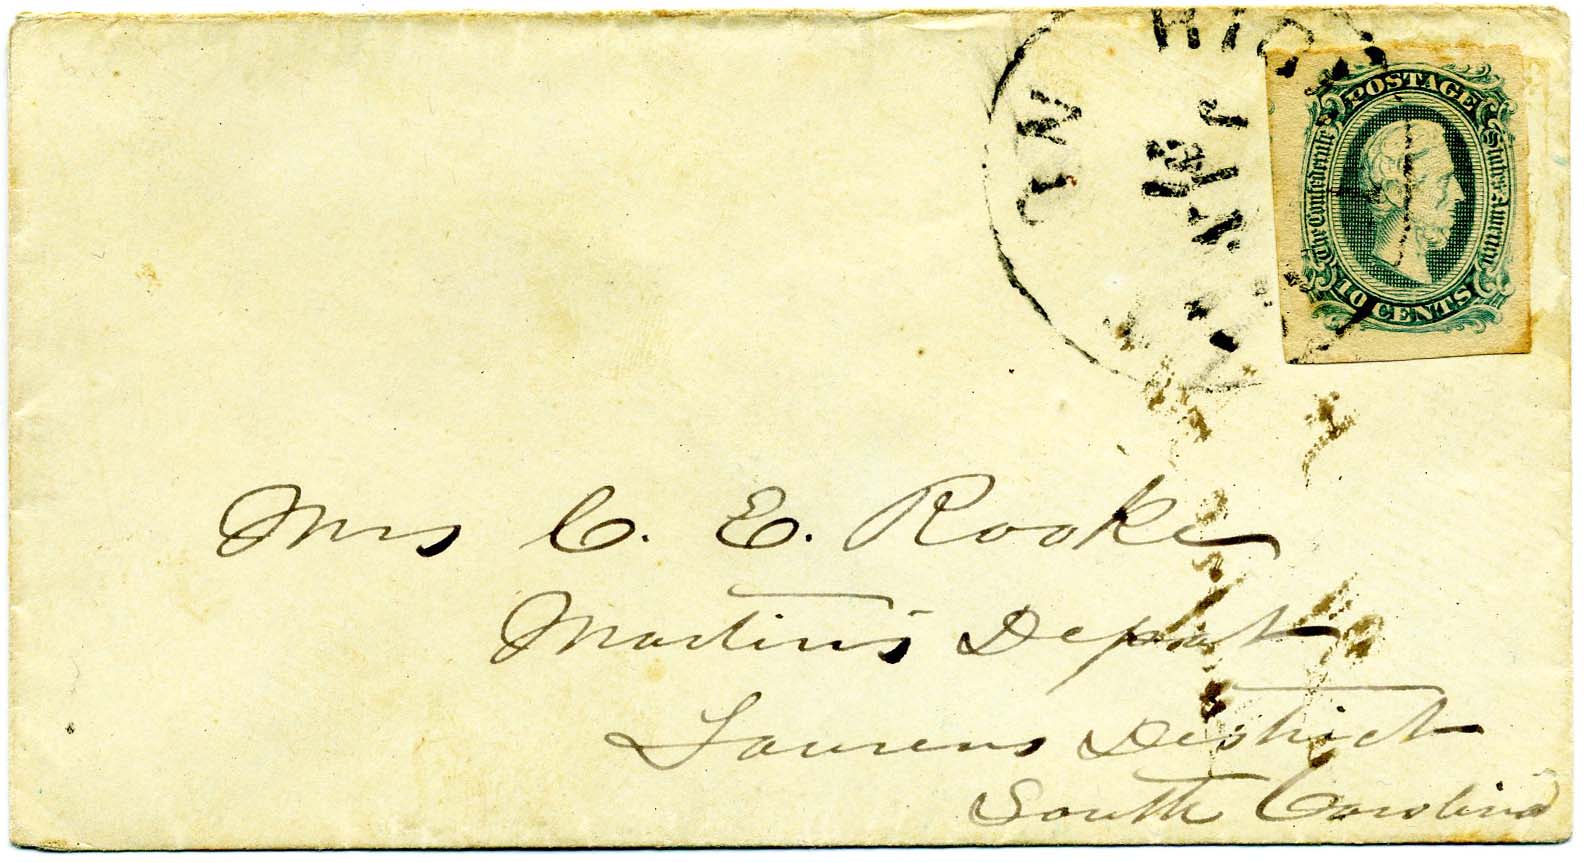 RIC
JUN
POSTAGE
The Confederate States America
10 CENTS
Mrs C. E. Rooke
Martin's Depot
Laurens District
South Carolina